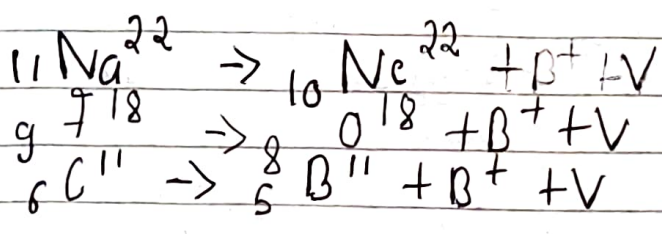 ₁₁Na²² → ₁₀Ne²² + β⁺ + V
₉F¹⁸ → ₈O¹⁸ + β⁺ + V
₆C¹¹ → ₅B¹¹ + β⁺ + V